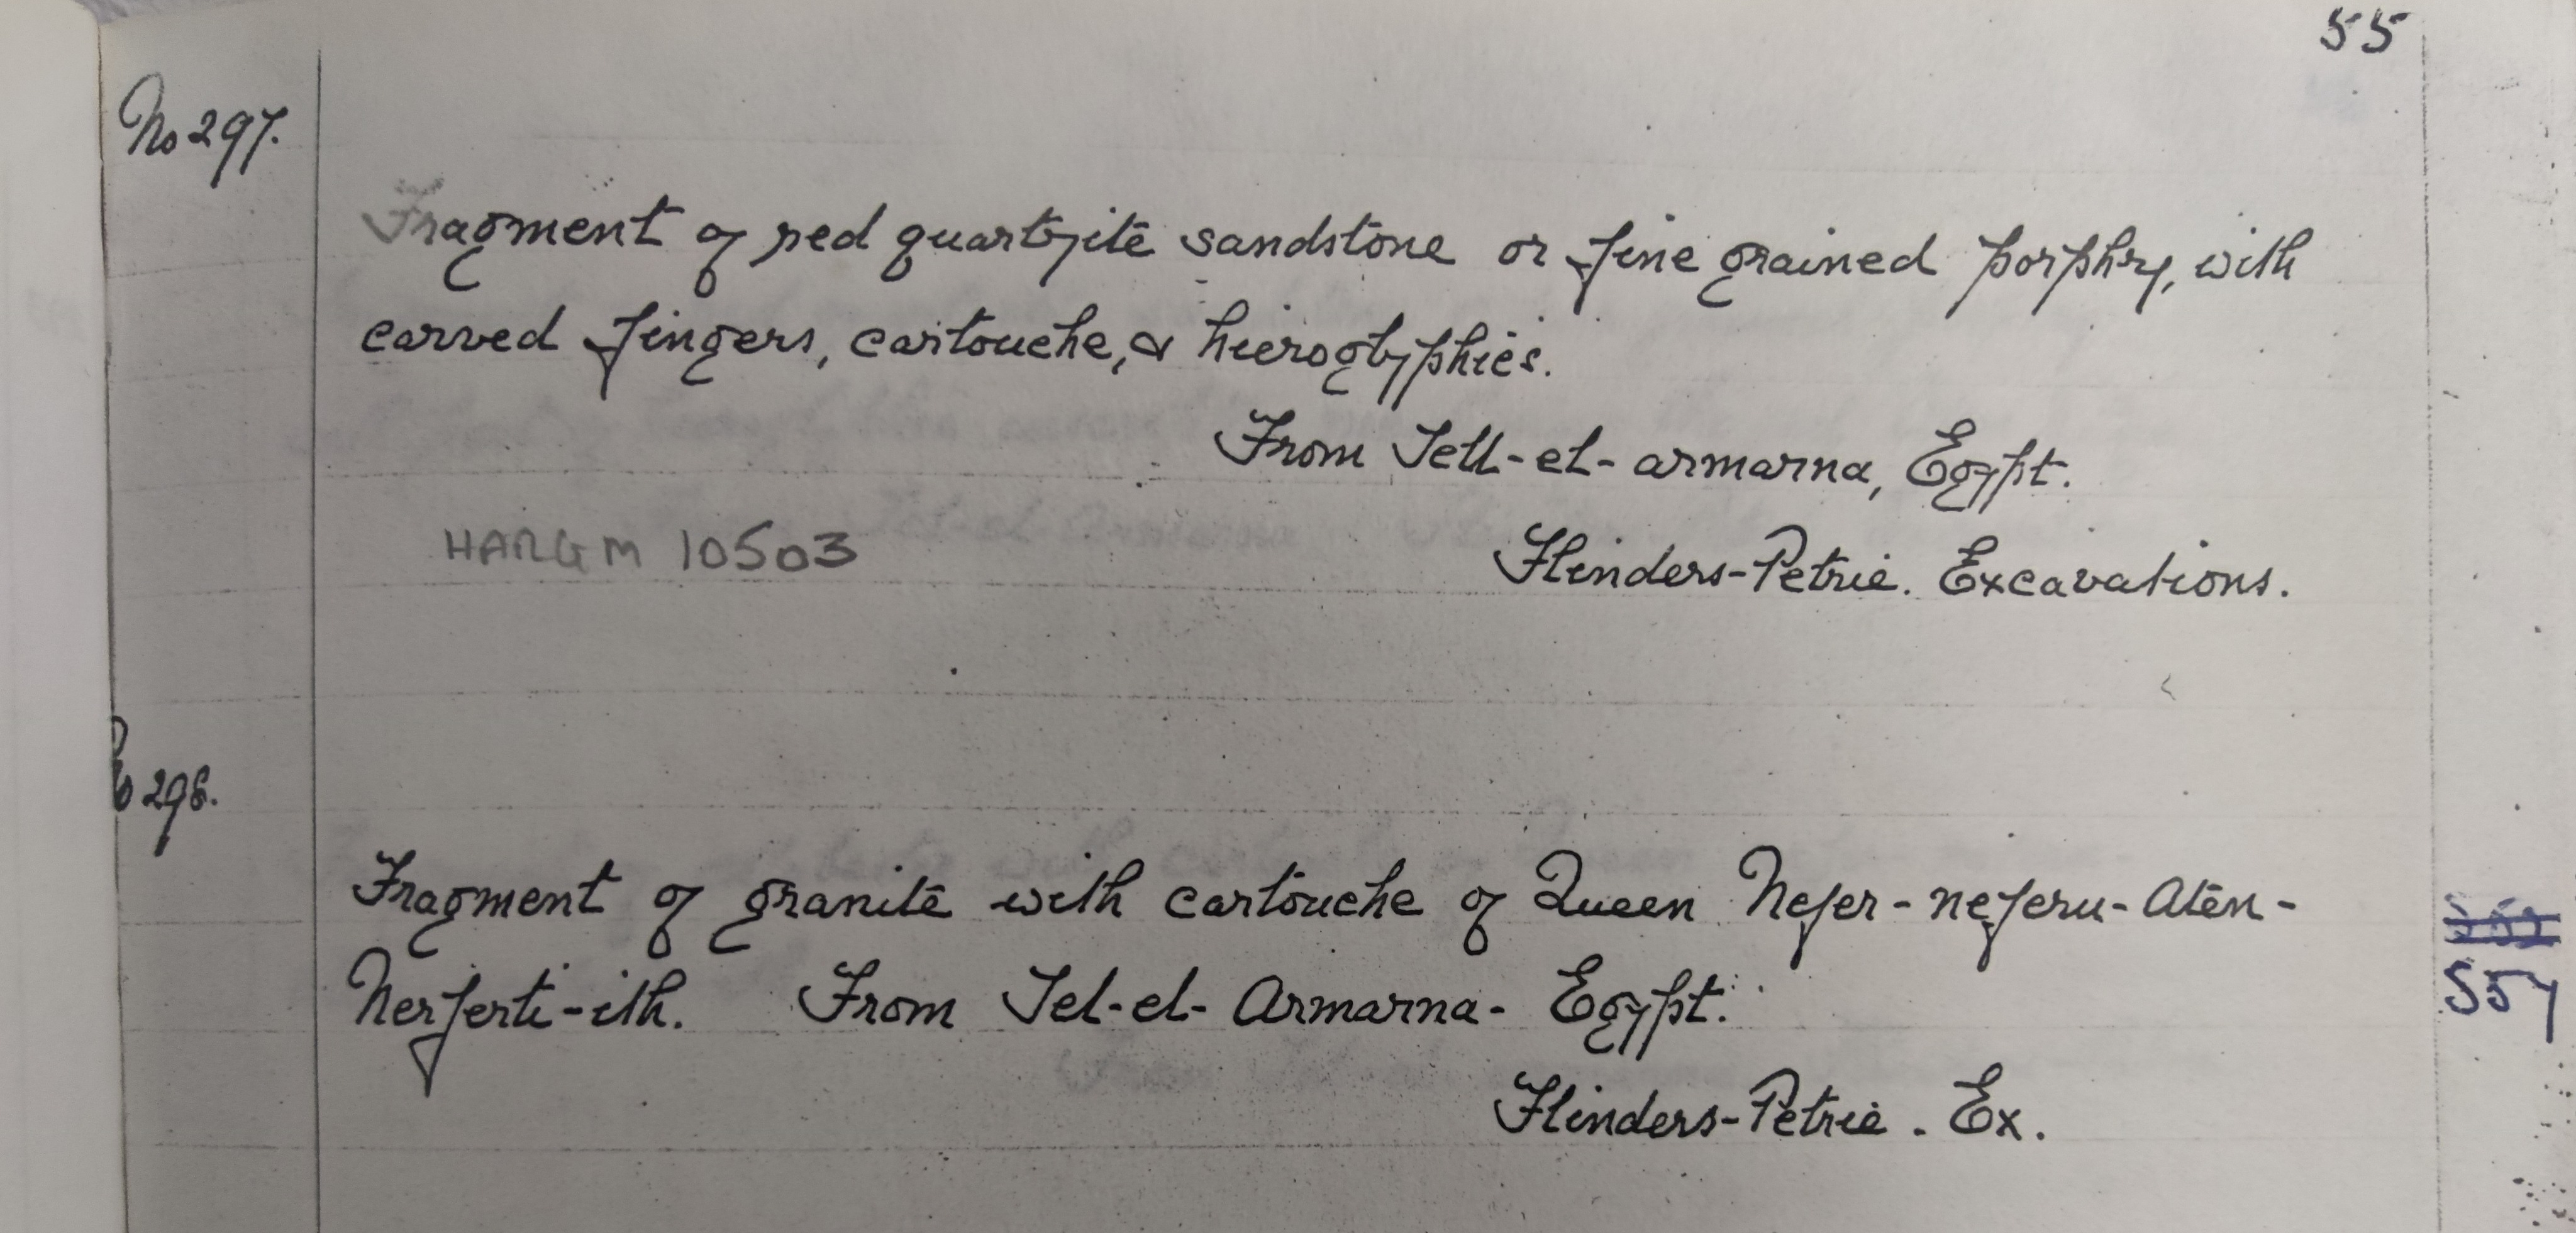 55
No 297.
Fragment of red quartzite sandstone or fine grained porphry, with
carved fingers, cartouche, & hieroglyphics.
From Tell-el-armarna, Egypt.
HARGM 10503
Flinders-Petrie. Excavations.
298.
Fragment of granite with cartouche of Queen Nefer-neferu-Aten-
Nerferti-ith. From Tel-el-Armarna- Egypt.
557
Flinders-Petrie. Ex.